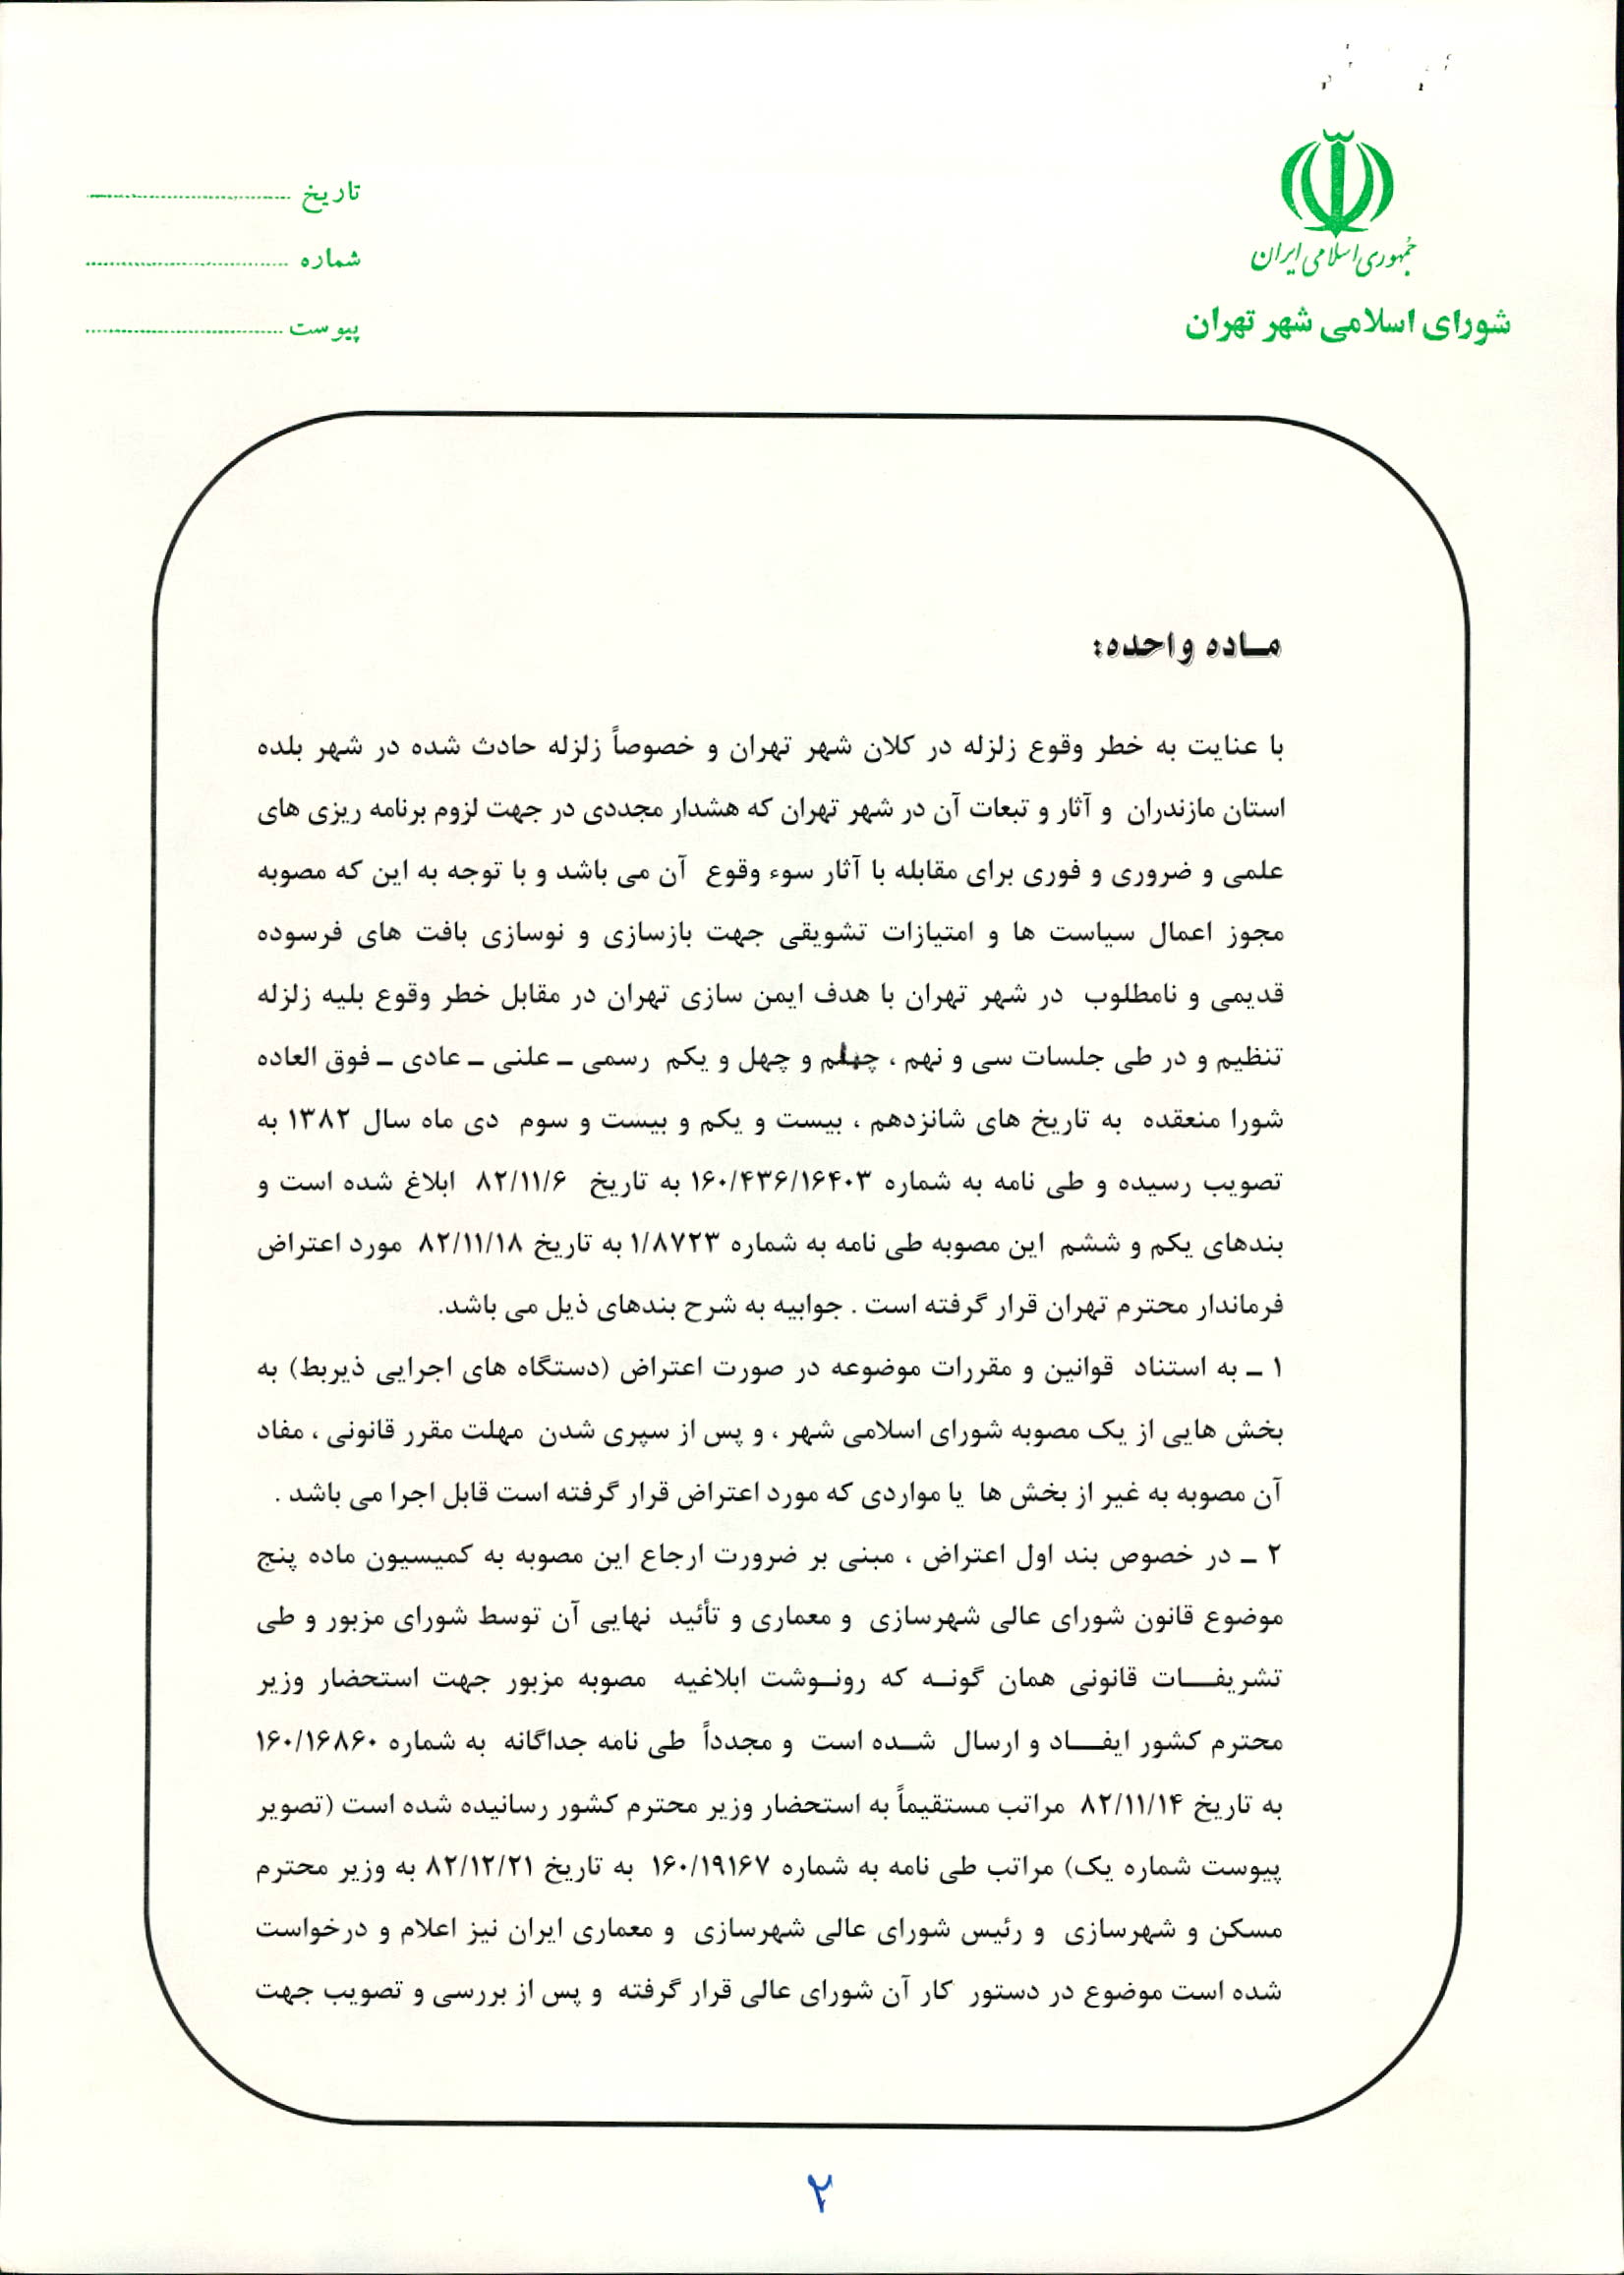 جمهوری اسلامی ایران
شورای اسلامی شهر تهران
تاریخ
شماره
پیوست
مـاده واحده:
با عنایت به خطر وقوع زلزله در کلان شهر تهران و خصوصاً زلزله حادث شده در شهر بلده
استان مازندران و آثار و تبعات آن در شهر تهران که هشدار مجددی در جهت لزوم برنامه ریزی های
علمی و ضروری و فوری برای مقابله با آثار سوء وقوع آن می باشد و با توجه به این که مصوبه
مجوز اعمال سیاست ها و امتیازات تشویقی جهت بازسازی و نوسازی بافت های فرسوده
قدیمی و نامطلوب در شهر تهران با هدف ایمن سازی تهران در مقابل خطر وقوع بلیه زلزله
تنظیم و در طی جلسات سی و نهم ، چهلم و چهل و یکم رسمی ـ علنی ـ عادی ـ فوق العاده
شورا منعقده به تاریخ های شانزدهم ، بیست و یکم و بیست و سوم دی ماه سال ۱۳۸۲ به
تصویب رسیده و طی نامه به شماره ۱۶۰/۴۳۶/۱۶۴۰۳ به تاریخ ۸۲/۱۱/۶ ابلاغ شده است و
بندهای یکم و ششم این مصوبه طی نامه به شماره ۱/۸۷۲۳ به تاریخ ۸۲/۱۱/۱۸ مورد اعتراض
فرماندار محترم تهران قرار گرفته است . جوابیه به شرح بندهای ذیل می باشد.
۱ ـ به استناد قوانین و مقررات موضوعه در صورت اعتراض (دستگاه های اجرایی ذیربط) به
بخش هایی از یک مصوبه شورای اسلامی شهر ، و پس از سپری شدن مهلت مقرر قانونی ، مفاد
آن مصوبه به غیر از بخش ها یا مواردی که مورد اعتراض قرار گرفته است قابل اجرا می باشد .
۲ ـ در خصوص بند اول اعتراض ، مبنی بر ضرورت ارجاع این مصوبه به کمیسیون ماده پنج
موضوع قانون شورای عالی شهرسازی و معماری و تأئید نهایی آن توسط شورای مزبور و طی
تشریفـــات قانونی همان گونــه که رونــوشت ابلاغیه مصوبه مزبور جهت استحضار وزیر
محترم کشور ایفـــاد و ارسال شــده است و مجدداً طی نامه جداگانه به شماره ۱۶۰/۱۶۸۶۰
به تاریخ ۸۲/۱۱/۱۴ مراتب مستقیماً به استحضار وزیر محترم کشور رسانیده شده است (تصویر
پیوست شماره یک) مراتب طی نامه به شماره ۱۶۰/۱۹۱۶۷ به تاریخ ۸۲/۱۲/۲۱ به وزیر محترم
مسکن و شهرسازی و رئیس شورای عالی شهرسازی و معماری ایران نیز اعلام و درخواست
شده است موضوع در دستور کار آن شورای عالی قرار گرفته و پس از بررسی و تصویب جهت
۲